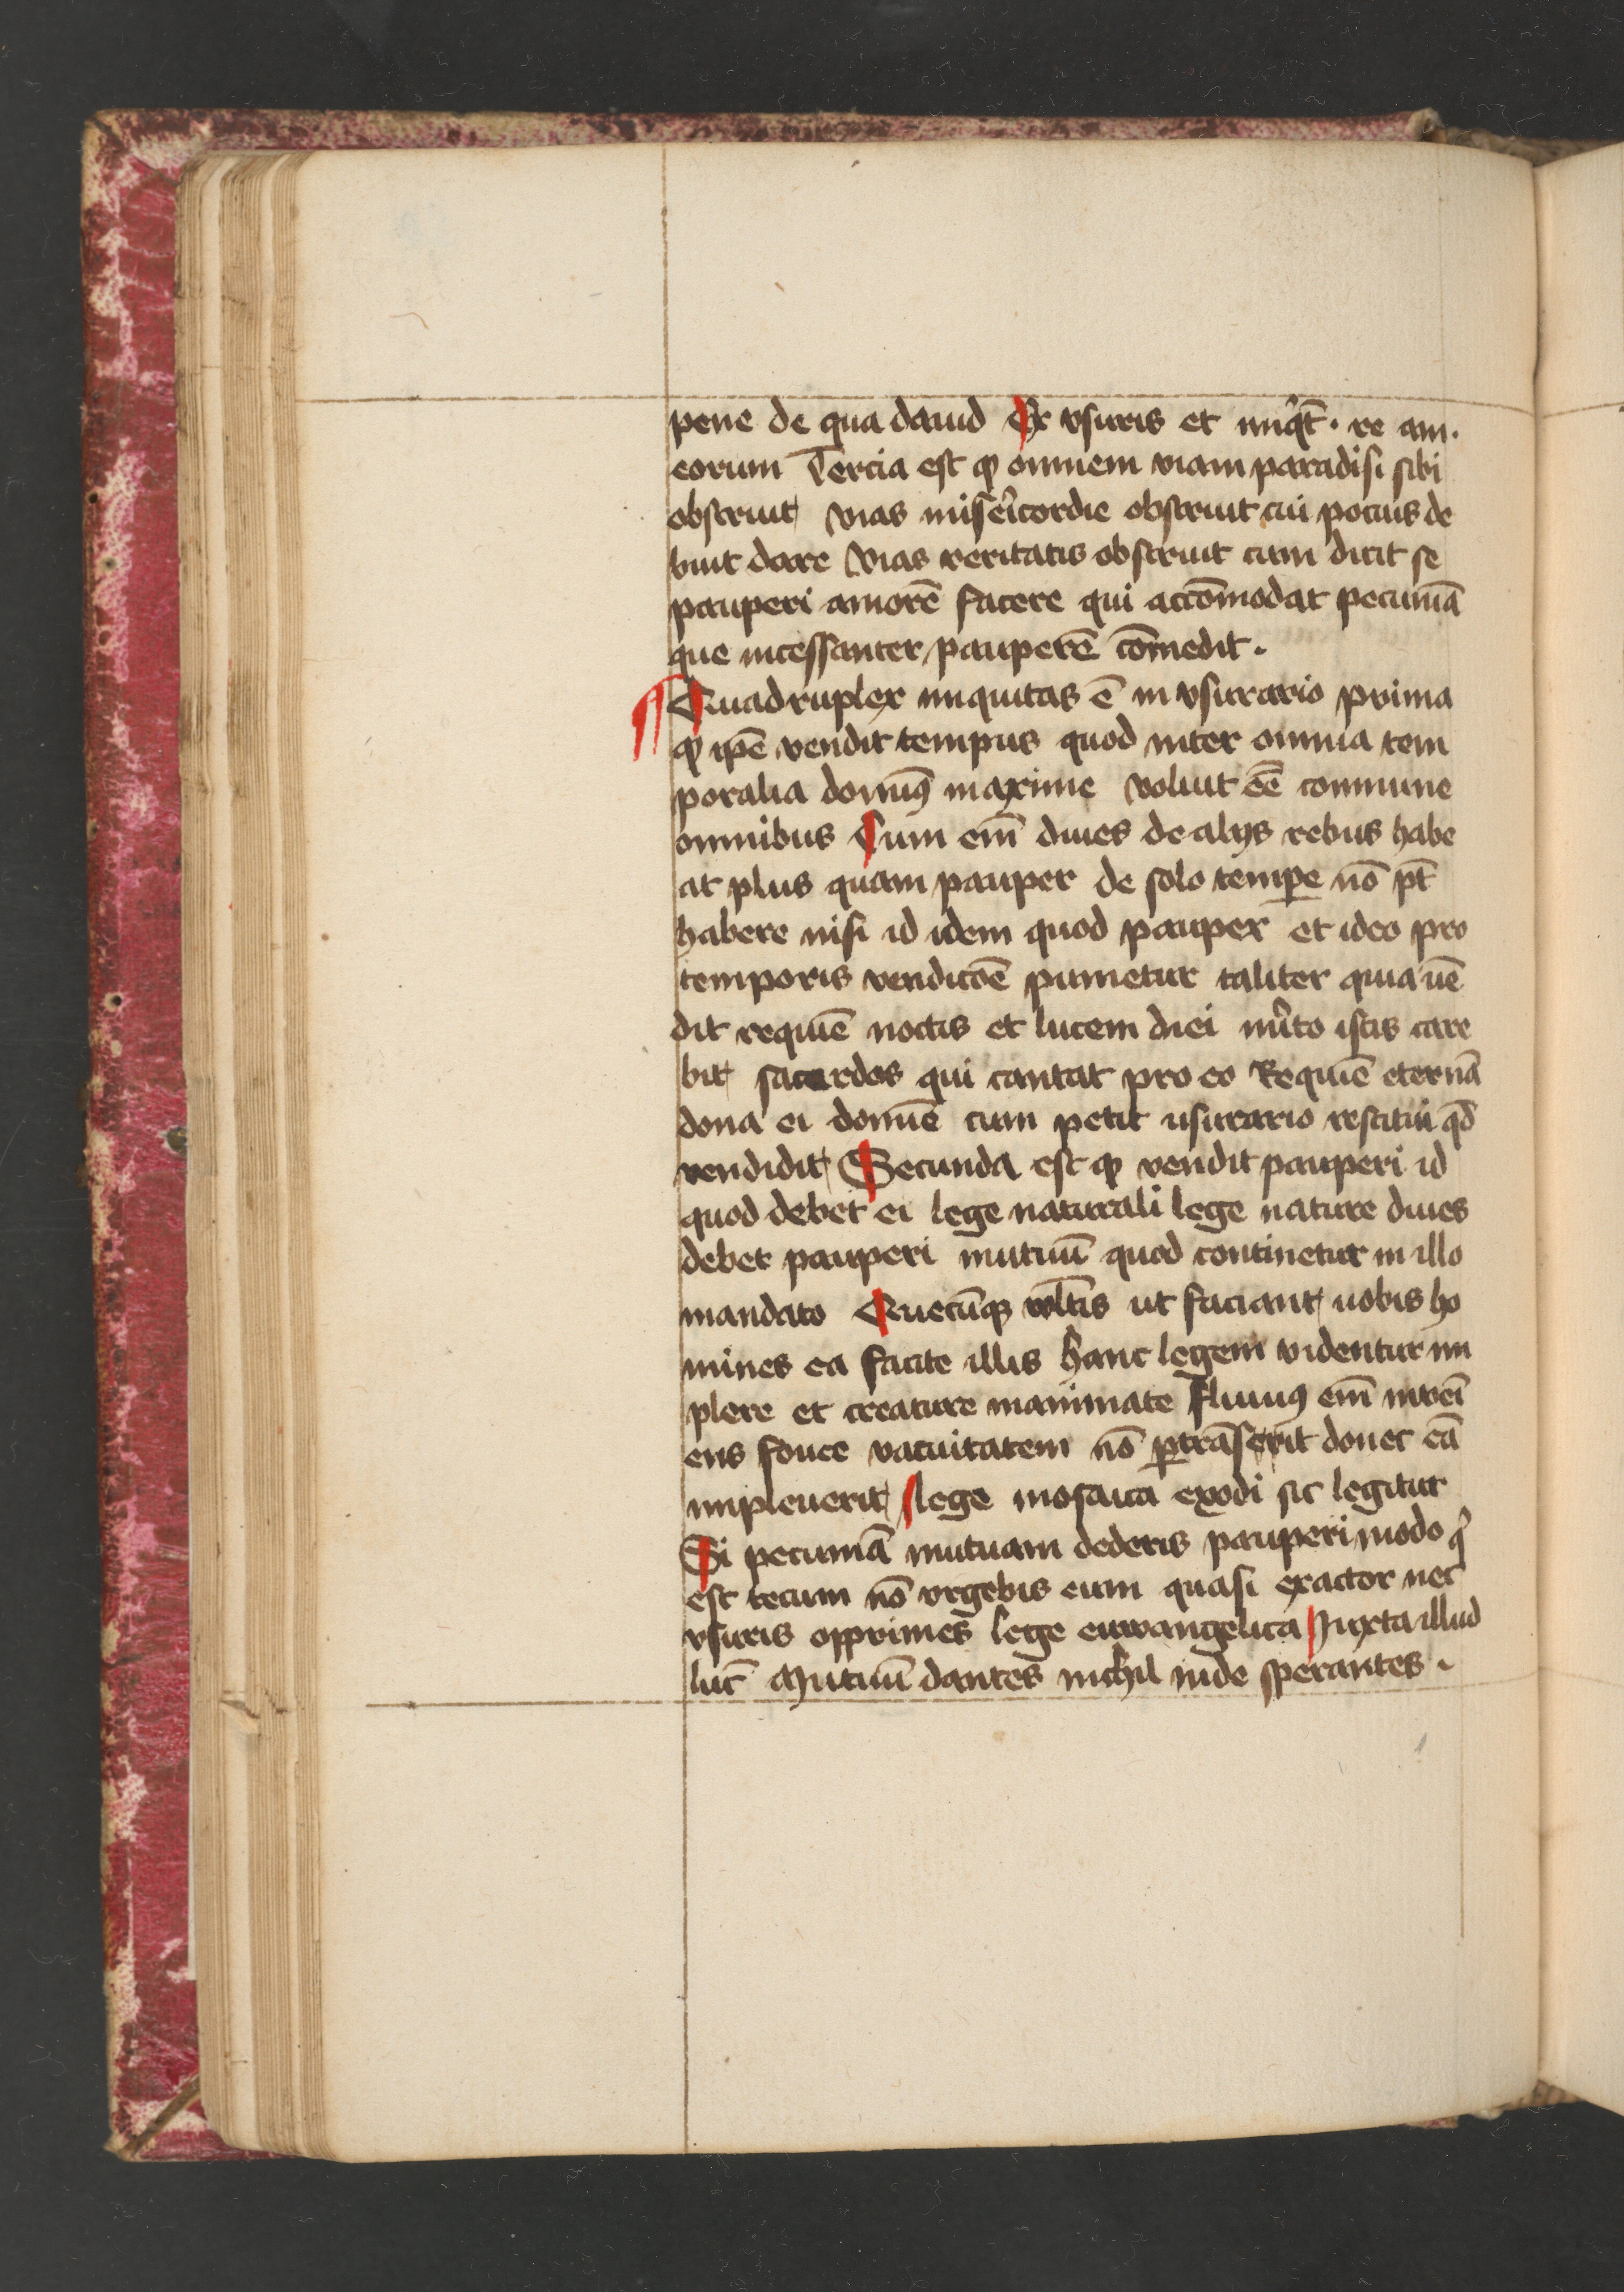 pene de qua dauid Ex vsuris et iniq̄t̄. re am.
eorum Tercia est ꝙ omnem viam paradisi sibi
obstruit vias miẜicordie obstruit cui pocius de
buit dare vias veritatis obstruit cum dicit se
pauperi amorē facere qui accōmodat pecuniā
que incessanter pauperē cōmedit.
¶ Quadruplex iniquitas ē in vsurario prima
ꝙ ip̄e vendit tempus quod inter omnia tem
poralia dominꝰ maxime voluit ēē commune
omnibus Cum em̄ diues de alijs rebus habe
at plus quam pauper de solo temꝑe nō pt̄
habere nisi id idem quod pauper et ideo pro
temporis vendicōē punietur taliter quia uē
dit requiē noctis et lucem diei mĩto istis care
bit sacerdos qui cantat pro eo Requiē eternā
dona ei domīe cum petit usurario restitui qd̄
vendidit Secunda est ꝙ vendit pauperi id
quod debet ei lege naturali lege nature diues
debet pauperi mutuū quod continetur in illo
mandato Quecūqꝫ vl̄tis ut faciant uobis ho
mines ea facite illis hanc legem videntur im
plere et creature inanimate fluuiꝰ em̄ inuei
ens fouee vacuitatem nō ꝑtrāsierit donec eā
impleuerit lege mosaica exodi sic legitur
Si pecuniā mutuam dederis pauperi modo qͥ
est tecum nō vrgebis eum quasi exactor nec
vsuris opprimes lege euwangelica Iuxta illud
luc̄ Mutuū dantes nichil inde sperantes.